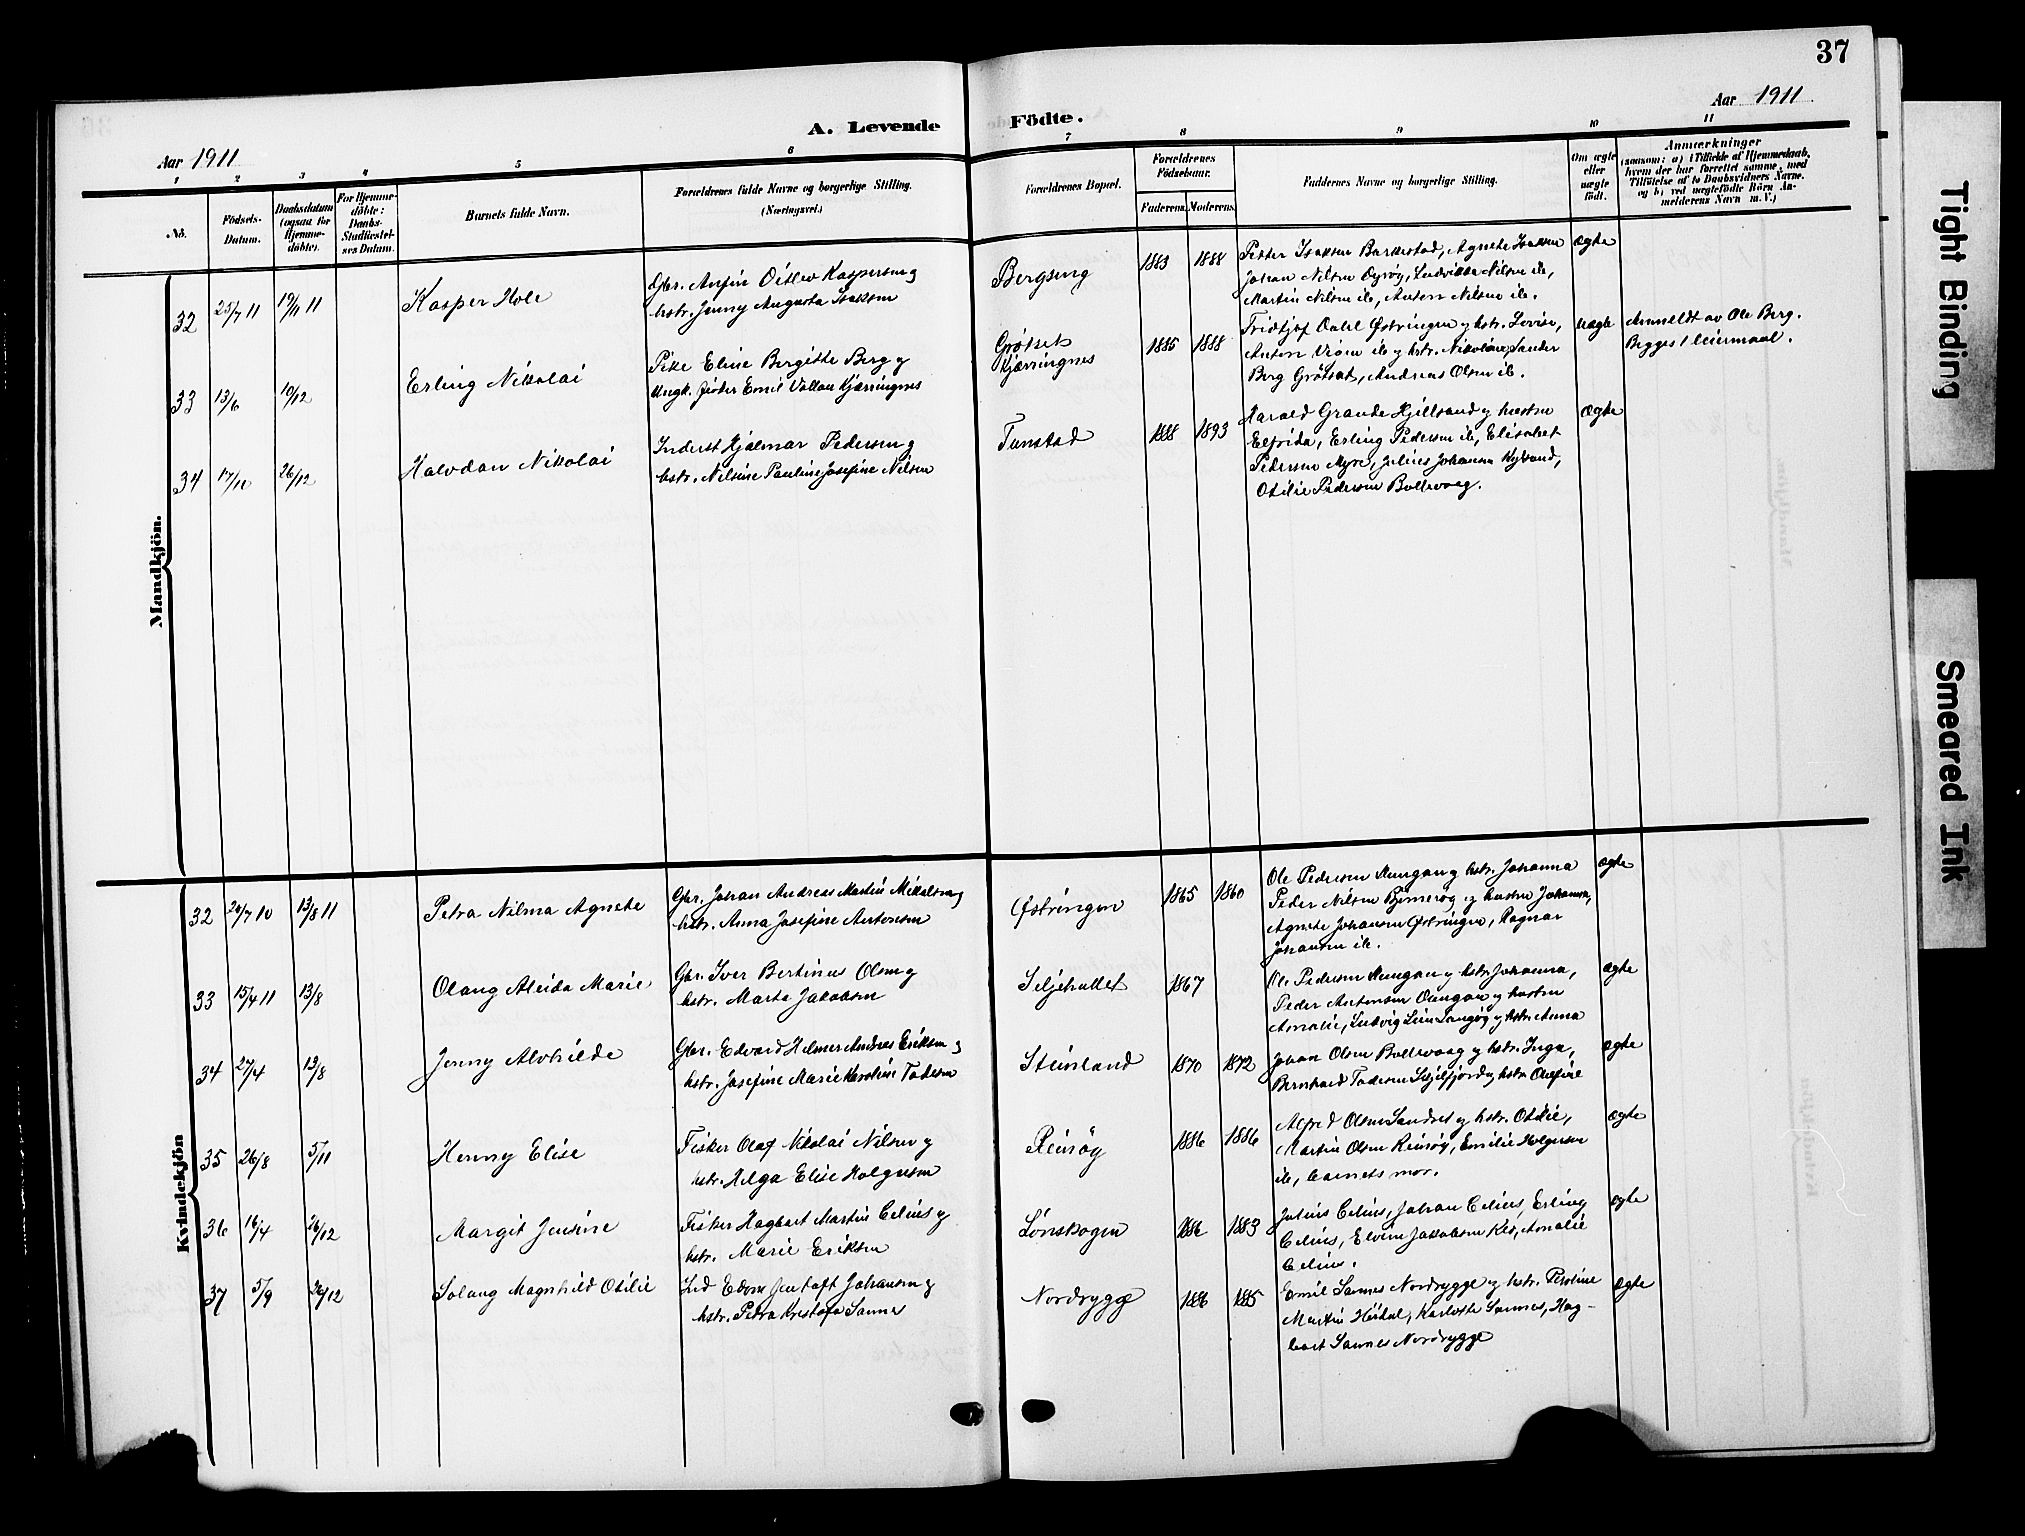 37
Aar 1911
Aar 1911
A. Levende
Födte.
1 2 3 4 5 6
7 8 9 10 11
No.
Födsels-
Datum.
Daabsdatum
(ogsaa for
Hjemme-
döbte).
For Hjemme-
döbte:
Daabs-
Stadfæstel-
ses Datum.
Barnets fulde Navn.
Forældrenes fulde Navne og borgerlige Stilling.
(Næringsvei.)
Forældrenes Bopæl.
Forældrenes
Födselsaar.
Faderens. Moderens.
Faddernes Navne og borgerlige Stilling.
Om ægte
eller
uægte
födt.
Anmærkninger
(saasom: a) i Tilfælde af Hjemmedaab,
hvem der har forrettet samme, med
Tilföielse af to Daabsvidners Navne,
og b) ved uægtefödte Börn An-
melderens Navn m. V.)
Mandkjön.
32 25/7 11 19/11 11 Kasper Hole
Gbr. Anfin Ditlev Kaspersen og
hstr. Jenny Augusta Isaksen
Bergseng 1883 1888
Petter Isaksen Barkestad, Agnete Isaksen
Johan Nilsen Dyrøy, Ludvikke Nilsen ib.,
Martin Nilsen ib., Anton Nilsen ib.
ægte
33 13/6 10/12 Erling Nikolai
Pike Eline Bergitte Berg og
Ungk. fisker Emil Vollan Kjærringnes
Grøtset
Kjærringnes
1885 1888
Fridtjof Dahl Østringen og hstr. Lovise,
Anton ib og hstr. Nikoline, Sander
Berg Grøtset, Andreas Olsen ib.
uægte
Anmeldt av Ole Berg.
Begges 1 leiermaal.
34 17/10 26/12 Halvdan Nikolai
Inderst Hjalmar Pedersen og
hstr. Nilsine Pauline Josefine Nilsen
Tunstad 1888 1893
Harald Grande Hjillsand og hustru
Elfrida, Erling Pedersen ib, Elisabet
Pedersen Myre, Julius Johansen
Otilie Pedersen Bollevaag.
ægte
Kvindekjön
32 13/8 11 Petra Nilma Agnete
Gbr. Johan Andreas Martin Mikalsen og
hstr. Anna Josefine Antonsen
Østringen 1865 1860
Ole Pedersen og hstr. Johanna
Peder Nilsen og hustru Johanna,
Agnete Johansen Østringen, Ragnar
Johansen ib.
ægte
33 15/4 11 13/8 Olaug Aleida Marie
Gbr. Iver Bertinus Olsen og
hstr. Marta Jakobsen
Seljehullet 1867
Ole Pedersen og hstr. Johanna,
Peder Antonsen og hustru
Amalie, Ludvig Langøy og hstr. Anna
ægte
34 27/4 13/8 Jenny Alvhilde
Gbr. Edvard Helmer Andreas Eriksen og
hstr. Josefine Marie Karoline Todesen
Steinland 1870 1872
Johan Olsen Bollevaag og hstr. Inga,
Bernhard Todesen og hstr.
ægte
35 26/8 5/11 Henny Elise
Fisker Olaf Nikolai Nilsen og
hstr. Helga Elise Holgersen
Reinsøy 1886 1886
Alfred Olsen Sandset og hstr. Otilie,
Martin Olsen Reinsøy, Emilie Holgersen
ib, barnets mor.
ægte
36 16/4 26/12 Margit Jensine
Fisker Hagbart Martin Celius og
hstr. Marie Eriksen
Lønskogen 1886 1883
Julius Celius, Johan Celius, Erling
Celius, Jakobsen Amalie
Celius.
ægte
37 5/9 26/12 Solaug Magnhild Otilie
Ind Johansen og
hstr. Petra Kristofa Sannes
Nordrygge 1886 1885
Emil Sannes Nordrygge og hstr. Peroline
Martin Karlotte Sannes, Hag-
bart Sannes Nordrygge
ægte
Tight Binding
Smeared Ink